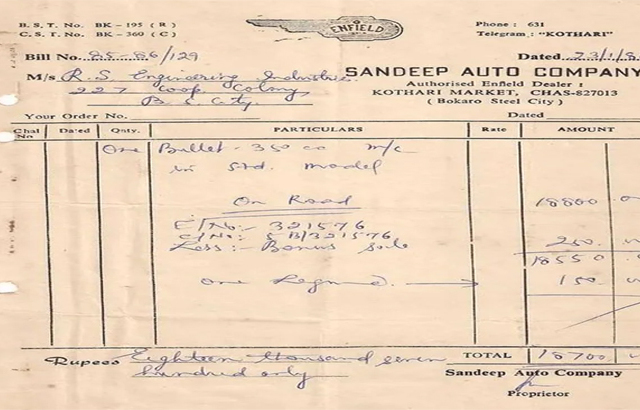 B. S. T. No. BK - 195 ( R )
C. S. T. No. BK - 360 ( C )
ENFIELD
Phone : 631
Telegram : "KOTHARI"
Bill No. 85-86/129
Dated 23/1/8
M/s R. S. Engineering Industries.
227 Coop. Colony,
B. S. City.
SANDEEP AUTO COMPANY
Authorised Enfield Dealer :
KOTHARI MARKET, CHAS-827013
( Bokaro Steel City )
Your Order No.
Dated
Chal No Dated Qnty. PARTICULARS Rate AMOUNT
One Bullet - 350 cc m/c
in Std. model
On Road 18800
E/No :- 321576
C/No :- 5 B/321576
Less :- Bonus 250
18550
One 150
Rupees Eighteen thousand seven
hundred only
TOTAL 18700
Sandeep Auto Company
Proprietor